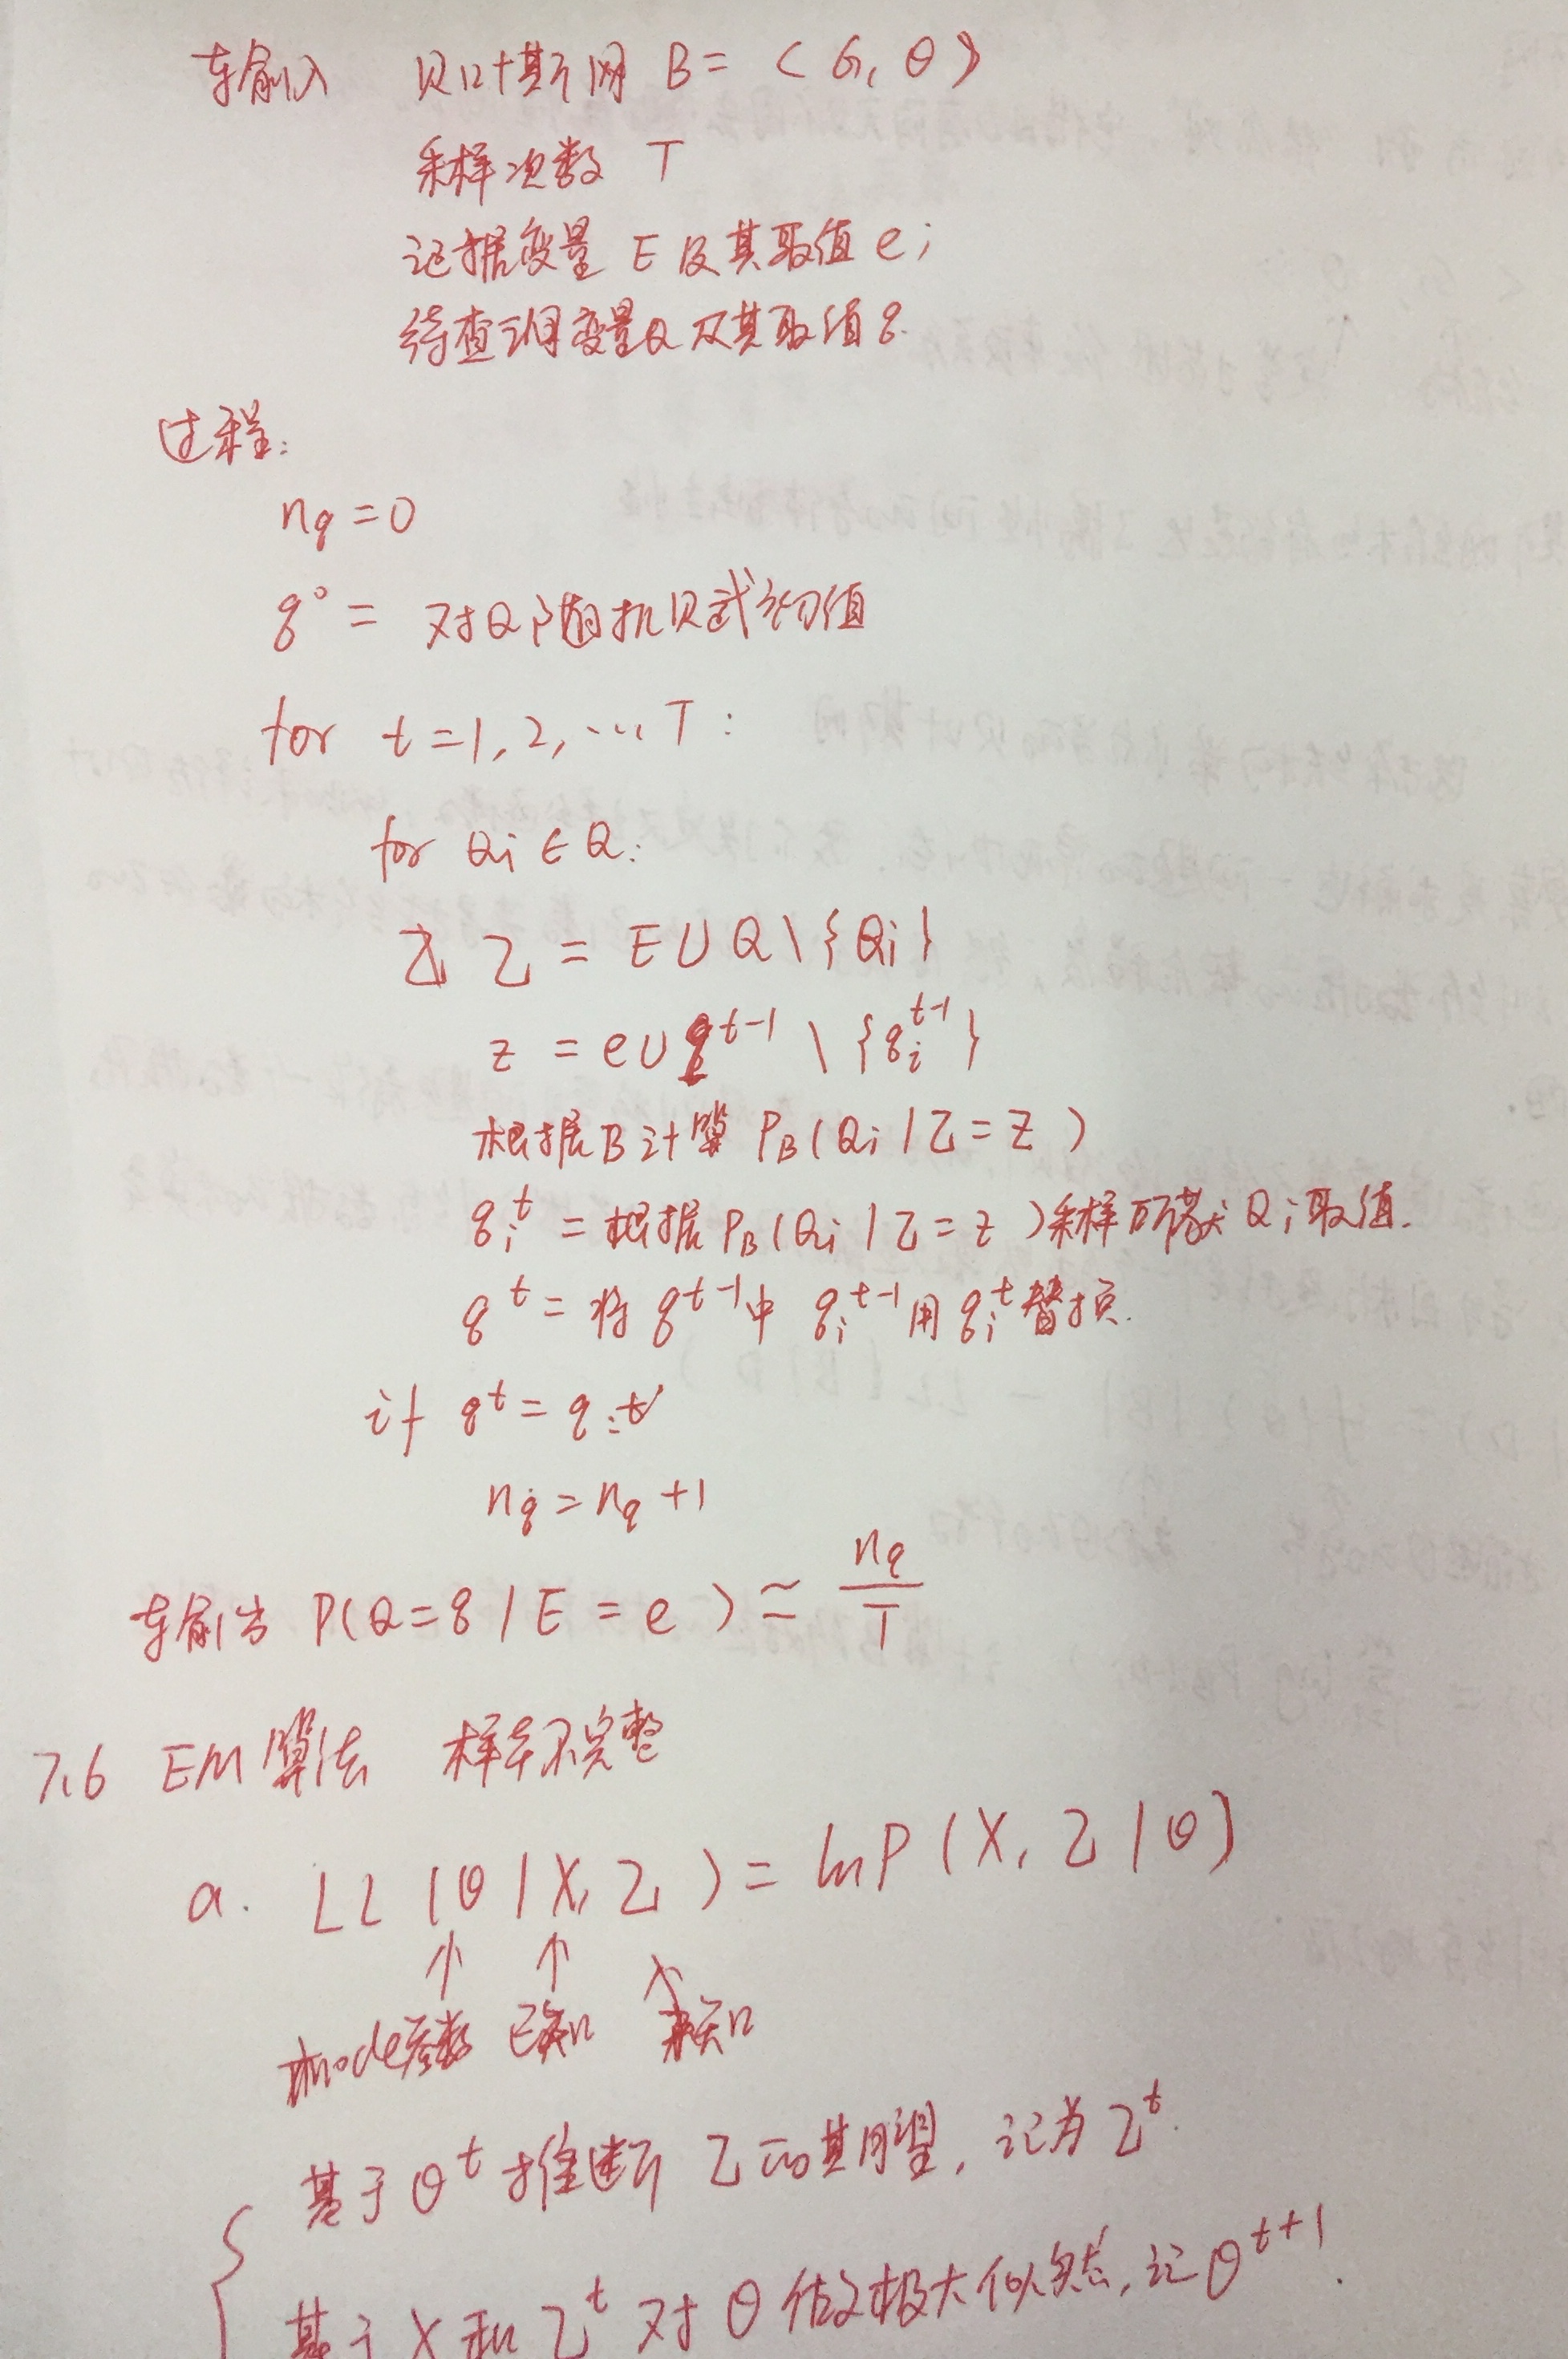 输入 贝叶斯网 B = < G, θ >
采样次数 T
证据变量 E 及其取值 e;
待查询变量Q 及其取值 q.
过程:
nq = 0
q⁰ = 对Q随机赋初值
for t = 1, 2, … T :
for Qi ∈ Q:
Z = E ∪ Q \ {Qi}
z = e ∪ q^{t-1} \ {q_i^{t-1}}
根据B计算 P_B(Qi | Z = z)
q_i^t = 根据 P_B(Qi | Z = z) 采样所获 Qi取值.
q^t = 将 q^{t-1}中 q_i^{t-1}用 q_i^t替换.
if q^t = q
nq = nq + 1
输出 P(Q = q | E = e) ≃ nq / T
7.6 EM算法 样本不完整
a. LL (θ | X, Z) = ln P (X, Z | θ)
参数 已知 未知
基于 θ^t 推断 Z 的期望, 记为 Z^t.
基于 X 和 Z^t 对 θ 做极大似然, 记 θ^{t+1}.